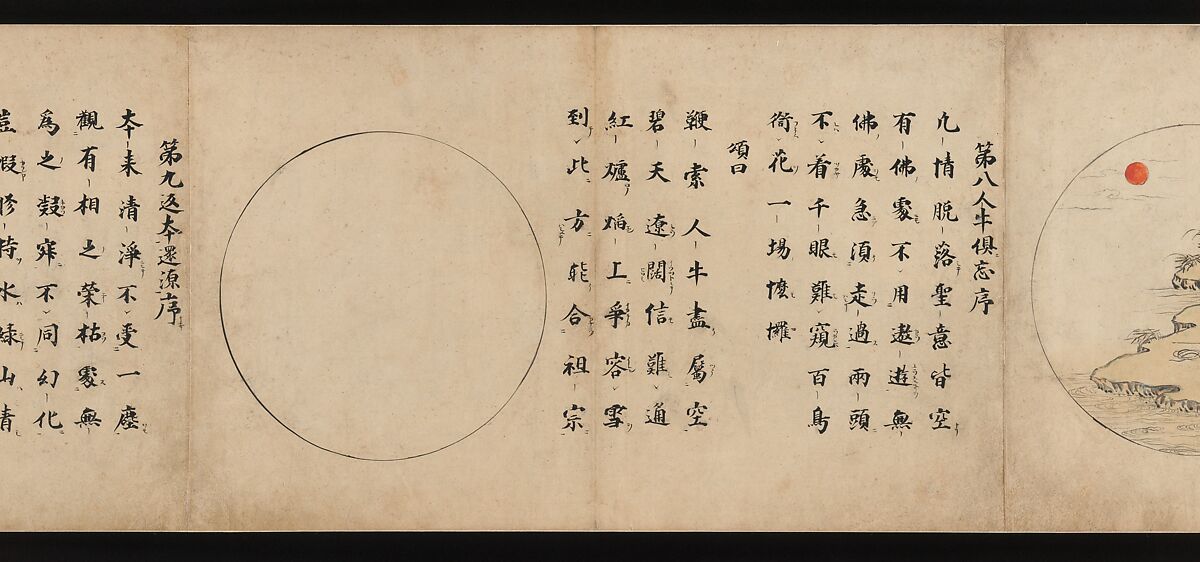 第八人牛俱忘序
凡情脱落聖意皆空
有佛處不用遨遊無
佛處急須走過兩頭
不着千眼難窺百鳥
銜花一場懡㦬
頌曰
鞭索人牛盡屬空
碧天遼闊信難通
紅爐焰上爭容雪
到此方能合祖宗
第九返本還源序
本来清淨不受一塵
觀有相之榮枯處無
爲之凝寂不同幻化
豈假修持水緑山青